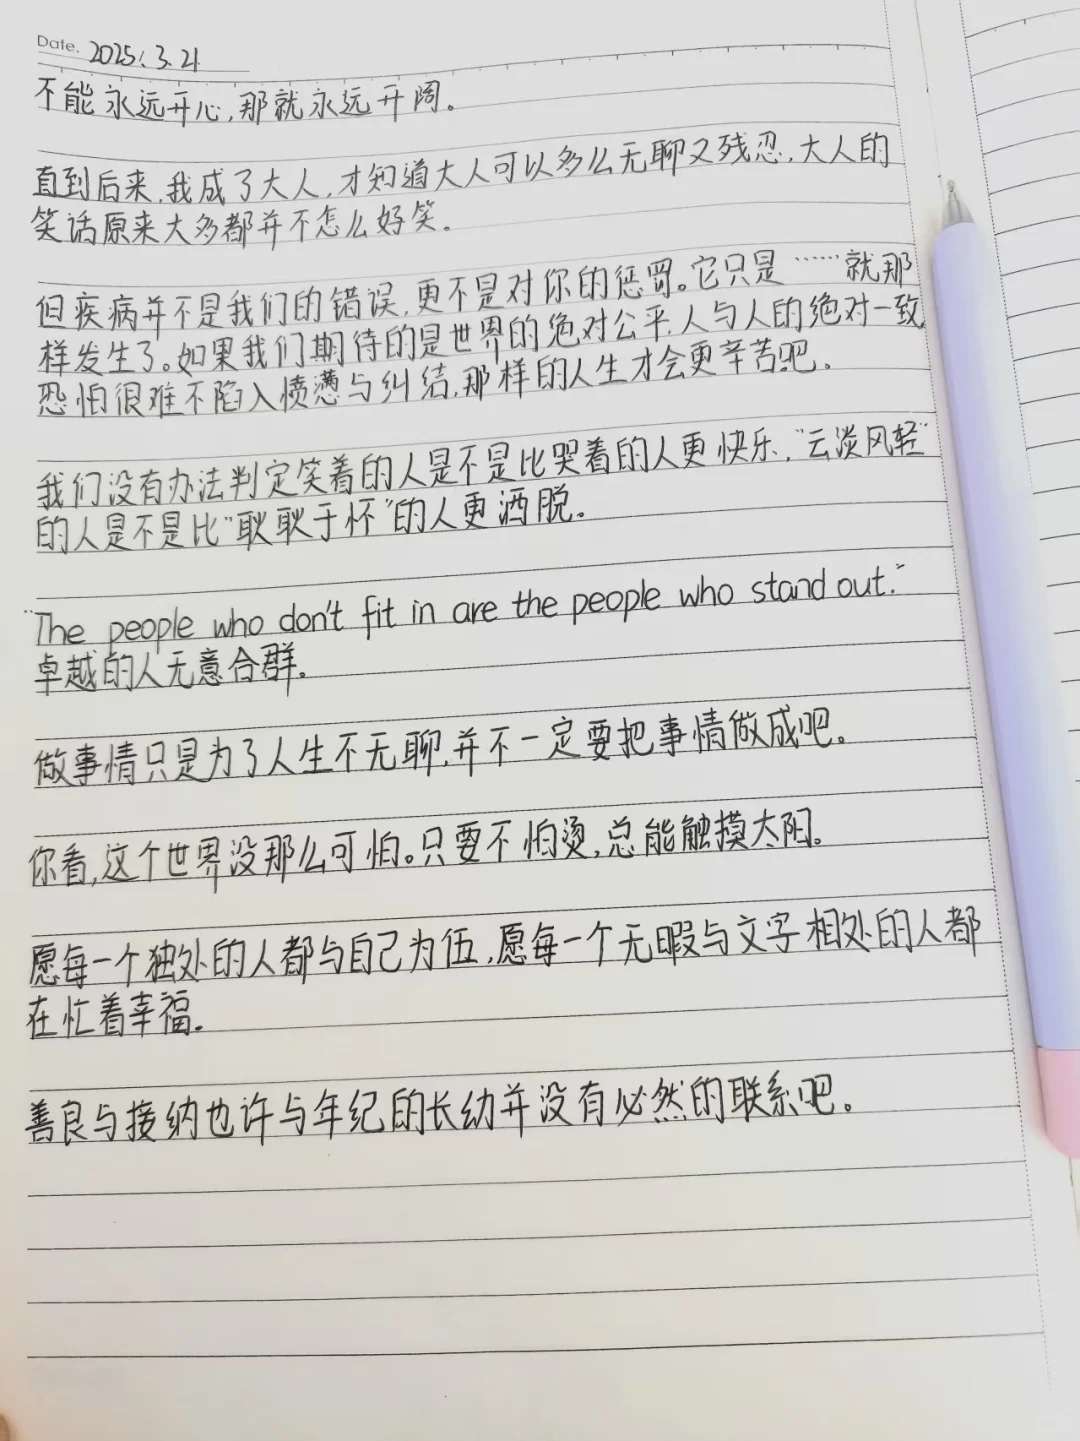 Date. 2025.3.21
不能永远开心,那就永远开阔。
直到后来,我成了大人,才知道大人可以多么无聊又残忍,大人的
笑话原来大多都并不怎么好笑。
但疾病并不是我们的错误,更不是对你的惩罚。它只是……就那
样发生了。如果我们期待的是世界的绝对公平,人与人的绝对一致
恐怕很难不陷入愤懑与纠结,那样的人生才会更辛苦吧。
我们没有办法判定笑着的人是不是比哭着的人更快乐,“云淡风轻”
的人是不是比“耿耿于怀”的人更洒脱。
“The people who don't fit in are the people who stand out.”
卓越的人无意合群。
做事情只是为了人生不无聊,并不一定要把事情做成吧。
你看,这个世界没那么可怕。只要不怕烫,总能触摸太阳。
愿每一个独处的人都与自己为伍,愿每一个无暇与文字相处的人都
在忙着幸福。
善良与接纳也许与年纪的长幼并没有必然的联系吧。